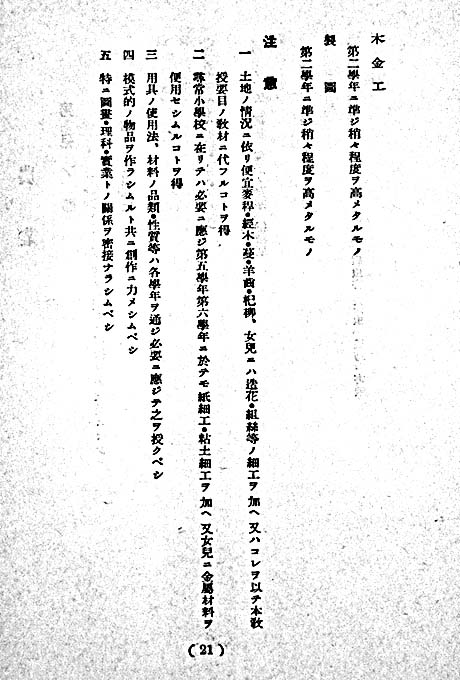 木金工
第二學年ニ準ジ稍々程度ヲ高メタルモノ
製圖
第二學年ニ準ジ稍々程度ヲ高メタルモノ
注意
一 土地ノ情況ニ依リ便宜麥稈・經木・蔓・羊齒・杞柳、女兒ニハ造花・組絲等ノ細工ヲ加ヘ又ハコレヲ以テ本敎
授要目ノ敎材ニ代フルコトヲ得
二 尋常小學校ニ在リテハ必要ニ應ジ第五學年第六學年ニ於テモ紙細工・粘土細工ヲ加ヘ又女兒ニ金屬材料ヲ
使用セシムルコトヲ得
三 用具ノ使用法、材料ノ品類・性質等ハ各學年ヲ通ジ必要ニ應ジテ之ヲ授クベシ
四 模式的ノ物品ヲ作ラシムルト共ニ創作ニ力メシムベシ
五 特ニ圖畫・理科・實業トノ關係ヲ密接ナラシムベシ
(21)